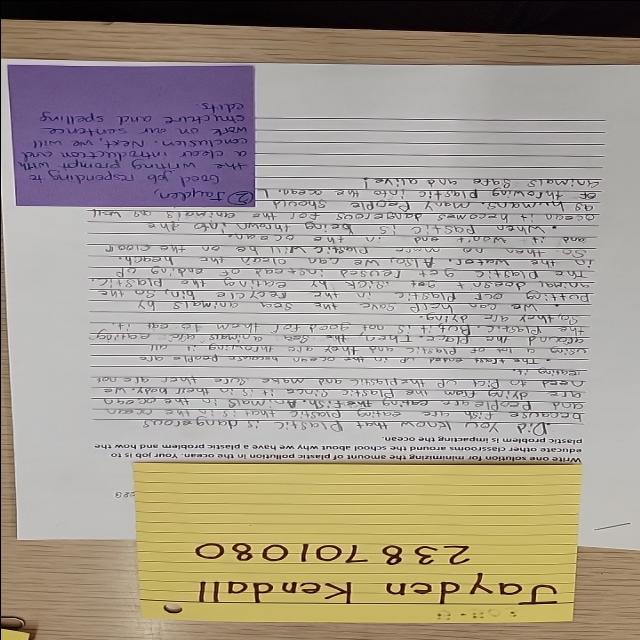 Jayden Kendall
238701080
Write one solution for minimizing the amount of plastic pollution in the ocean. Your job is to
educate other classrooms around the school about why we have a plastic problem and how the
plastic problem is impacting the ocean.
Did you know that Plastic is dangerous
because fish are eating Plastic that is in the ocean
and People are eating the fish. Animals in the ocean
are dying from the Plastic since it is in their body. We
need to Pick up the Plastic and make sure they are not
eating it.
• The trash ended up in the ocean because people are
using a lot of Plastic and they are throwing it all
around the Place. Then, the sea animals are eating
the Plastic. But it is not good for them to eat it.
So they are dying.
• We can help save the sea animals by
putting our Plastic in the recycle bin, so the
animal doesn't get sick by eating the Plastic.
The plastic get reused instead of ending up
in the water. Also, we can clean the beach.
So then no more Plastic will be on the floor
and it won't end in the ocean.
• When Pastic is being thrown into the
ocean it becomes dangerous for the animals as well
as humans. many People should
of throwing plastic into the ocean. L
animals safe and alive!
② Jayden,
Good job responding to
the writing prompt with
a clear introduction and
conclusion. Next, we will
work on our sentence
structure and spelling
edits.